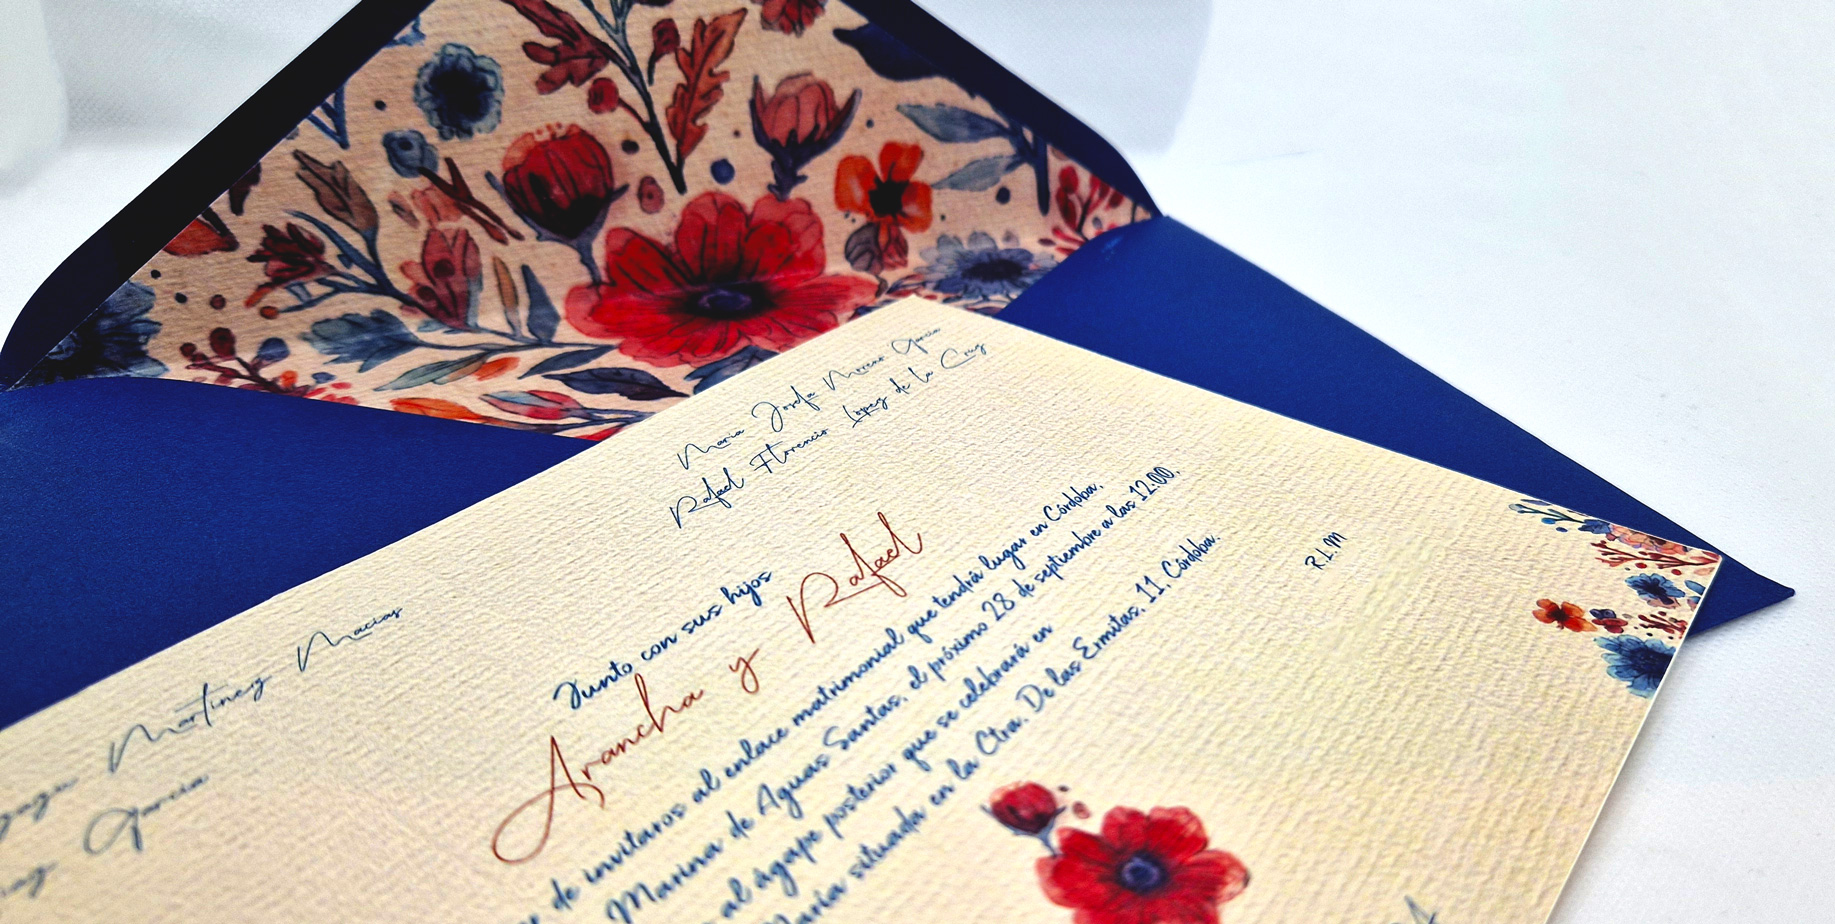 Martínez Macías
García
María Josefa Moreno García
Rafael Florencio López de la Cruz
Junto con sus hijos
Arancha y Rafael
de invitaros al enlace matrimonial que tendrá lugar en Córdoba,
Marina de Aguas Santas, el próximo 28 de septiembre a las 12:00,
al ágape posterior que se celebrará en
María situada en la Ctra. De las Ermitas, 11, Córdoba.
R.L.M